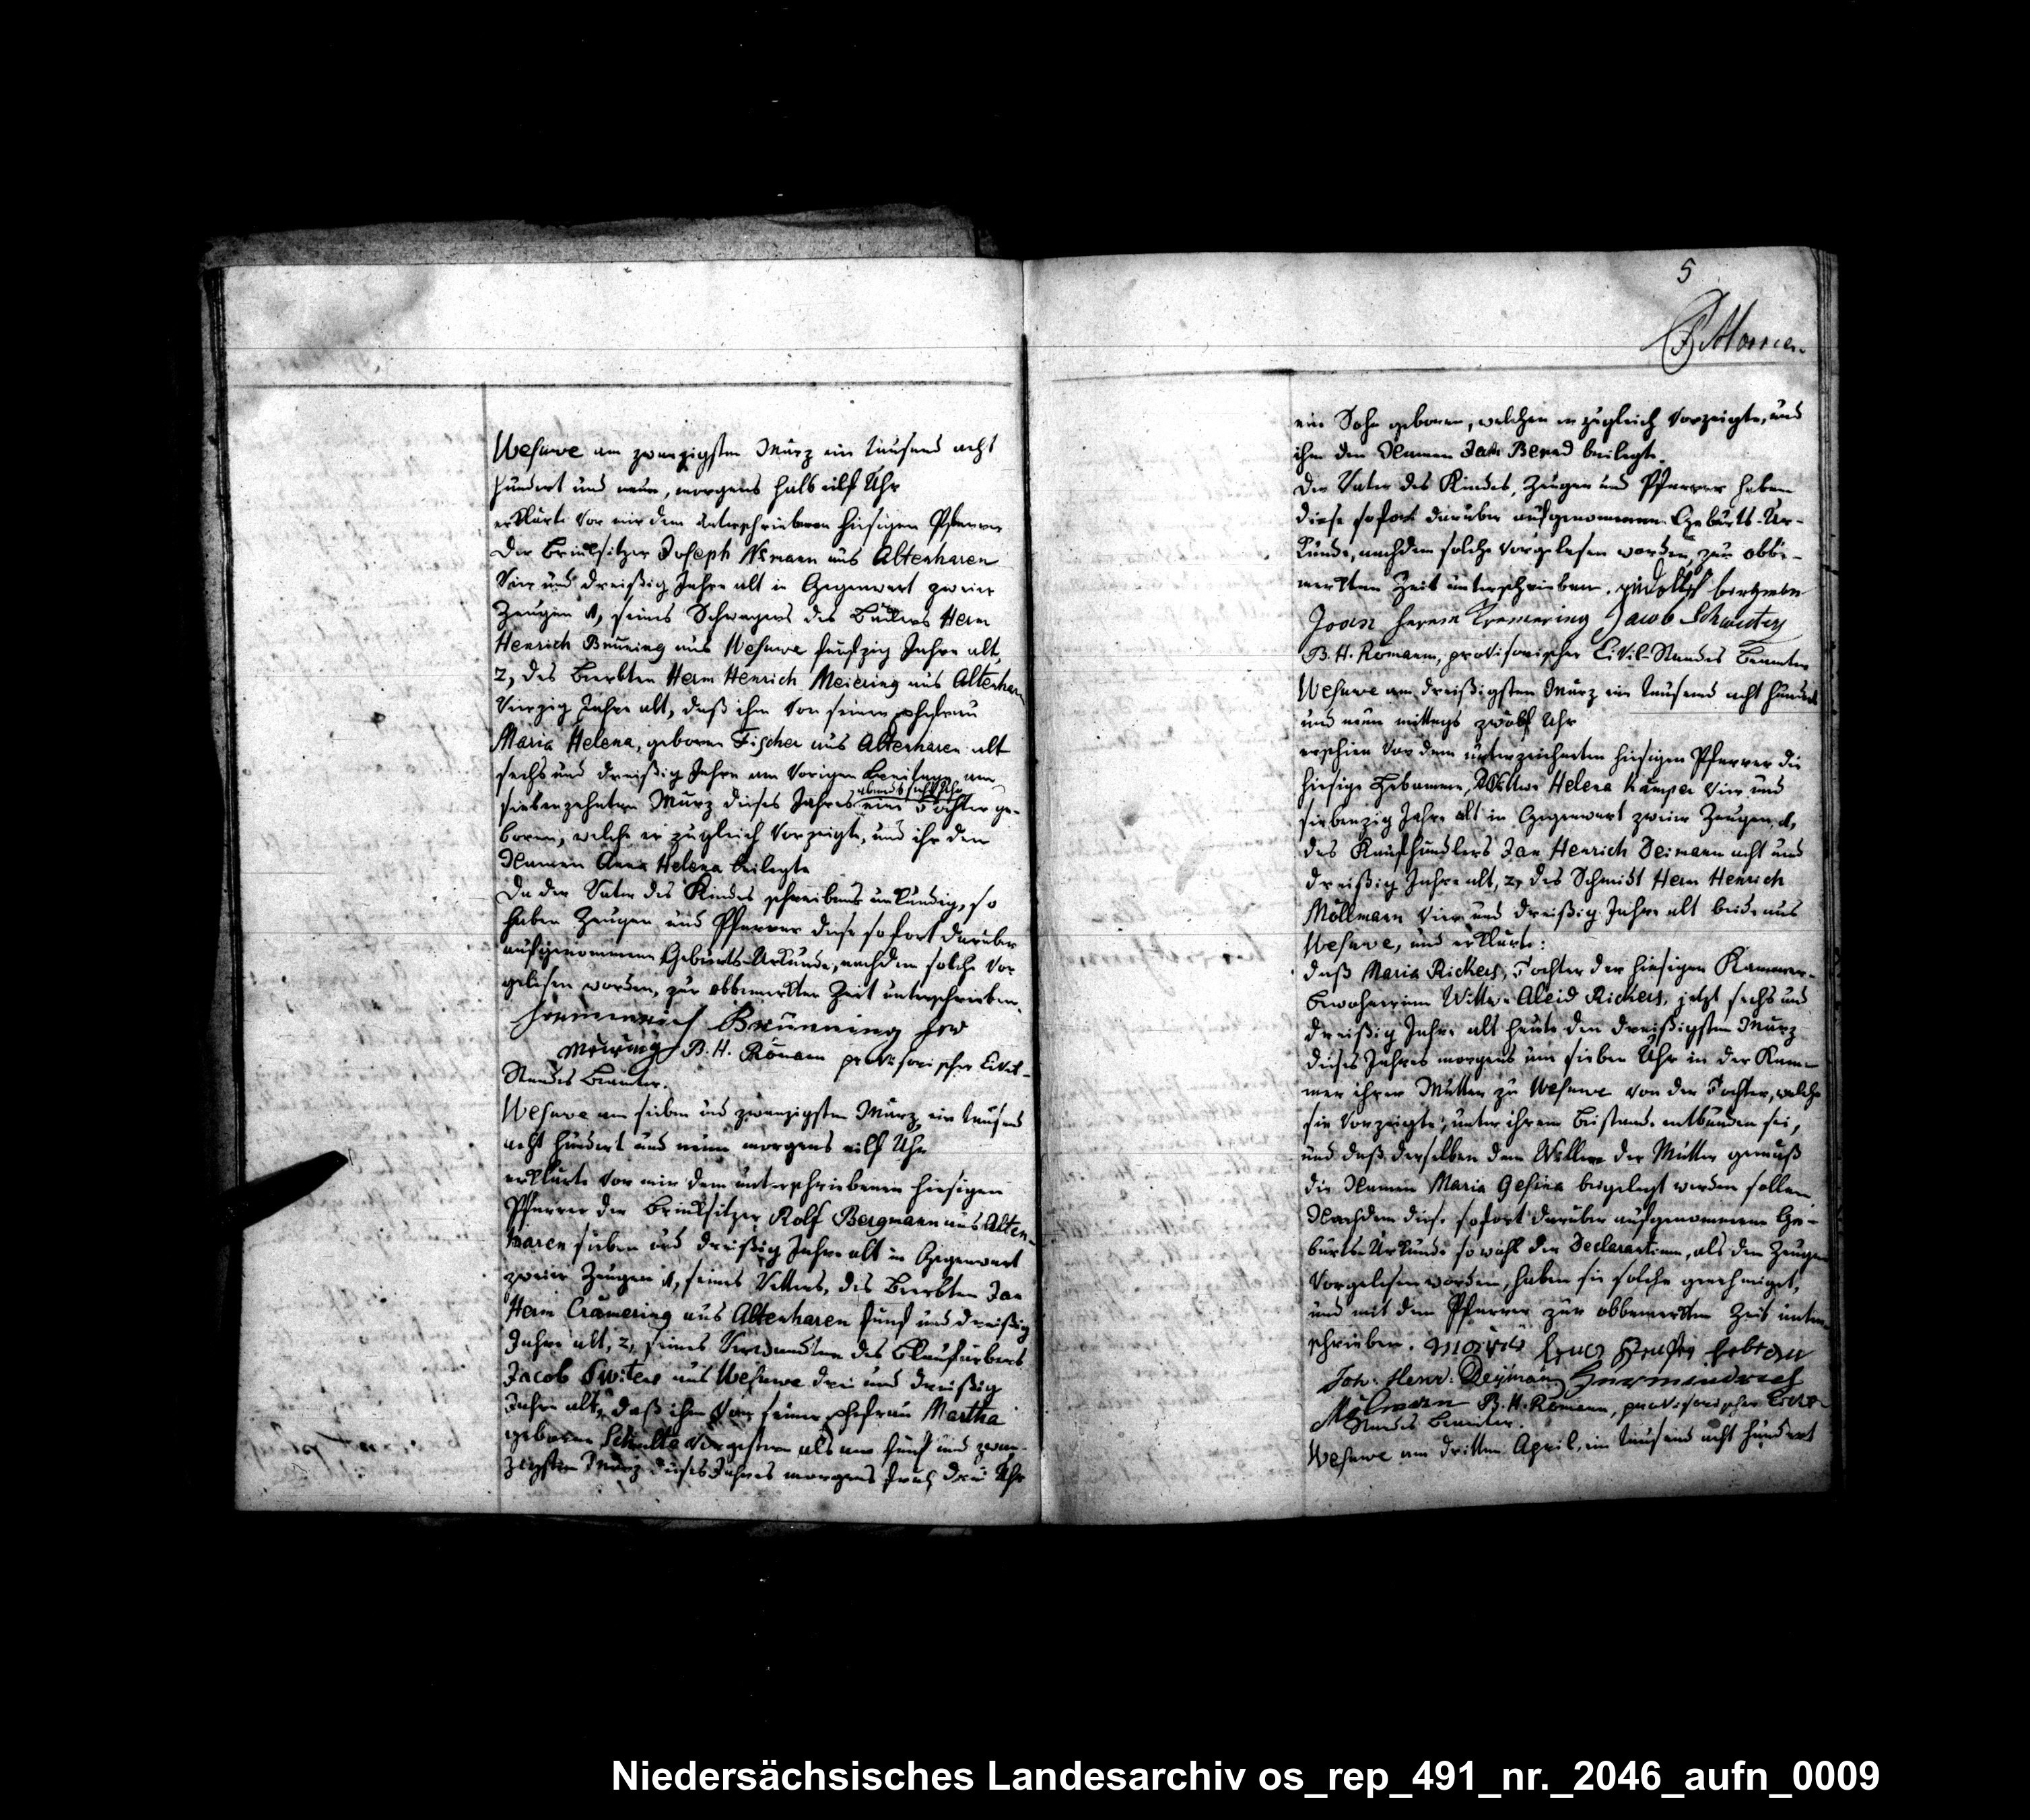 Wesuwe am zwanzigsten März ein tausend acht
hundert und neun, morgens halb eilf Uhr
erklärte vor mir dem unterschriebenen hiesigen Pfarrer
der Brinksitzer Joseph Nimann aus Altenharen
vier und dreißig Jahre alt in Gegenwart zweier
Zeugen 1, seines Schwagers des Herm
Henrich Bruning aus Wesuwe funfzig Jahre alt,
2, des Beerbten Herm Henrich Meiering aus Altenharen
vierzig Jahre alt, daß ihm von seiner Ehefrau
Maria Helena, geboren Fischer aus Altenharen alt
sechs und dreißig Jahre am vorigen Freitage am
abends Uhr
siebenzehnten März dieses Jahres eine Tochter ge-
boren, welche er zugleich vorzeigte, und ihr den
Namen Anna Helena beilegte
Da der Vater des Kindes schreibens unkundig, so
haben Zeugen und Pfarrer diese sofort darüber
aufgenommene Geburts-Urkunde, nachdem solche vor
gelesen worden, zur obbemerkten Zeit unterschrieben.
Brünning
Meiring B. H. Römann provisorischer Civil-
Standes Beamter.
Wesuwe am sieben und zwanzigsten März, ein tausend
acht hundert und neun morgens eilf Uhr
erklärte vor mir dem unterschriebenen hiesigen
Pfarrer der Brinksitzer Rolf Bergmann aus Alten-
haren sieben und dreißig Jahre alt in Gegenwart
zweier Zeugen 1, seines Vetters, des Beerbten Jan
Herm Cramering aus Altenharen fünf und dreißig
Jahre alt, 2, seines Verwandten des
Jacob Switers aus Wesuwe drei und dreißig
Jahre alt, daß ihm von seiner Ehefrau Martha
geboren Schulte vorgestern als am fünf und zwan-
zigsten März dieses Jahres morgens früh drei Uhr
5
ein Sohn geboren, welchen er zugleich vorzeigte, und
ihm den Namen Bernd beilegte.
Der Vater des Kindes, Zeugen und Pfarrer haben
diese sofort darüber aufgenommene Geburts-Ur-
kunde, nachdem solche vorgelesen worden, zur obbe-
merkten Zeit unterschrieben.
Joan Herm Kremering Jacob
B. H. Römann, provisorischer Civil-Standes Beamter
Wesuwe am dreißigsten März ein tausend acht hundert
und neun mittags zwölf Uhr
erschien vor dem unterzeichneten hiesigen Pfarrer die
hiesige Hebamme, Wittwe Helena Kamper vier und
siebenzig Jahre alt in Gegenwart zweier Zeugen, 1,
des Kaufhändlers Jan Henrich Deimann acht und
dreißig Jahre alt, 2, des Schmidt Herm Henrich
Möllmann vier und dreißig Jahre alt beide aus
Wesuwe, und erklärte:
daß Maria Rickers, Tochter der hiesigen Kammer-
bewohnerinn Wittwe Aleid Rickers, jetzt sechs und
dreißig Jahre alt heute den dreißigsten März
dieses Jahres morgens um sieben Uhr in der Kam-
mer ihrer Mutter zu Wesuwe von der Tochter, welche
sie vorzeigte, unter ihrem Beistande entbunden sei,
und daß derselben dem Willen der Mutter gemäß
die Namen Maria Gesina beigelegt werden sollen
Nachdem diese sofort darüber aufgenommene Ge-
burts-Urkunde sowohl der Declarantinn, als den Zeugen
vorgelesen worden, haben sie solche genehmiget,
und mit dem Pfarrer zur obbemerkten Zeit unter-
schrieben.
Joh. Henr. Deymann Hermindrich
Mölmann B. H. Römann, provisorischer Civil-
Standes Beamter.
Wesuwe am dritten April, ein tausend acht hundert
Niedersächsisches Landesarchiv os_rep_491_nr._2046_aufn_0009